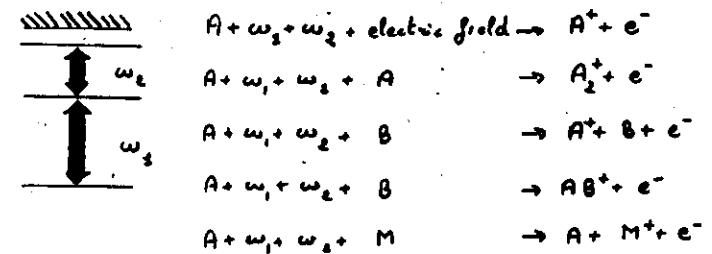 A + ω₁ + ω₂ + electric field → A⁺ + e⁻
ω₂
A + ω₁ + ω₂ + A → A₂⁺ + e⁻
A + ω₁ + ω₂ + B → A⁺ + B + e⁻
ω₁
A + ω₁ + ω₂ + B → AB⁺ + e⁻
A + ω₁ + ω₂ + M → A + M⁺ + e⁻